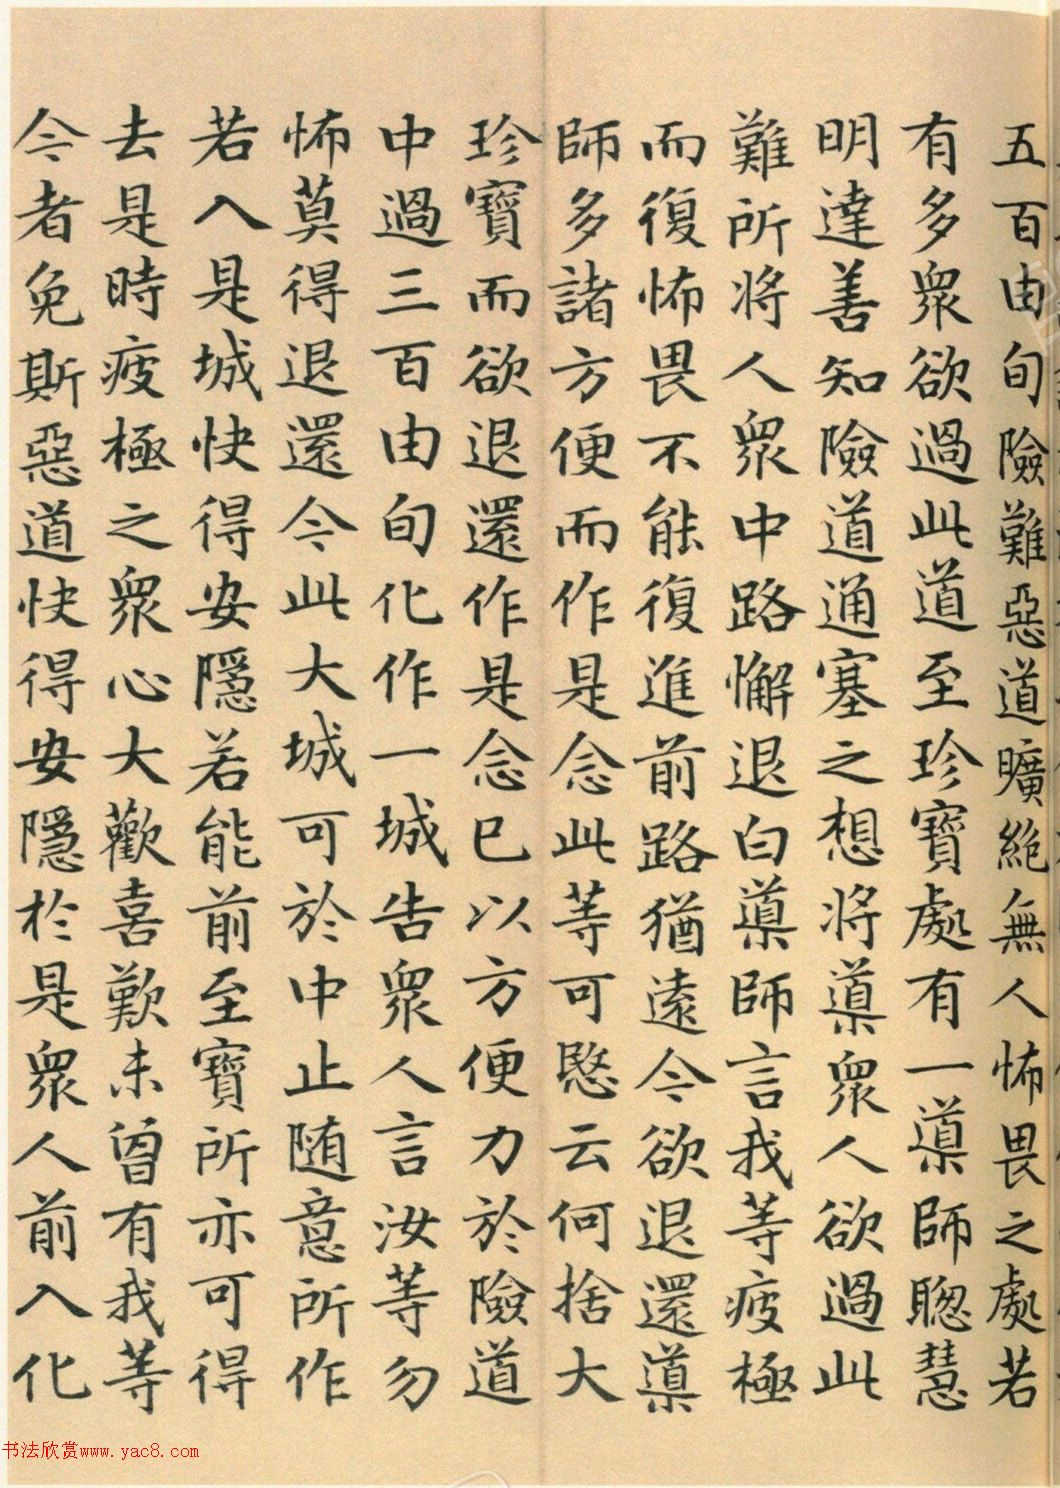 五百由旬險難惡道曠絶無人怖畏之處若
有多衆欲過此道至珍寶處有一導師聰慧
明達善知險道通塞之想將導衆人欲過此
難所將人衆中路懈退白導師言我等疲極
而復怖畏不能復進前路猶遠今欲退還導
師多諸方便而作是念此等可愍云何捨大
珍寶而欲退還作是念已以方便力於險道
中過三百由旬化作一城告衆人言汝等勿
怖莫得退還今此大城可於中止随意所作
若入是城快得安隱若能前至寶所亦可得
去是時疲極之衆心大歡喜歎未曾有我等
今者免斯惡道快得安隱於是衆人前入化
书法欣赏www.yac8.com